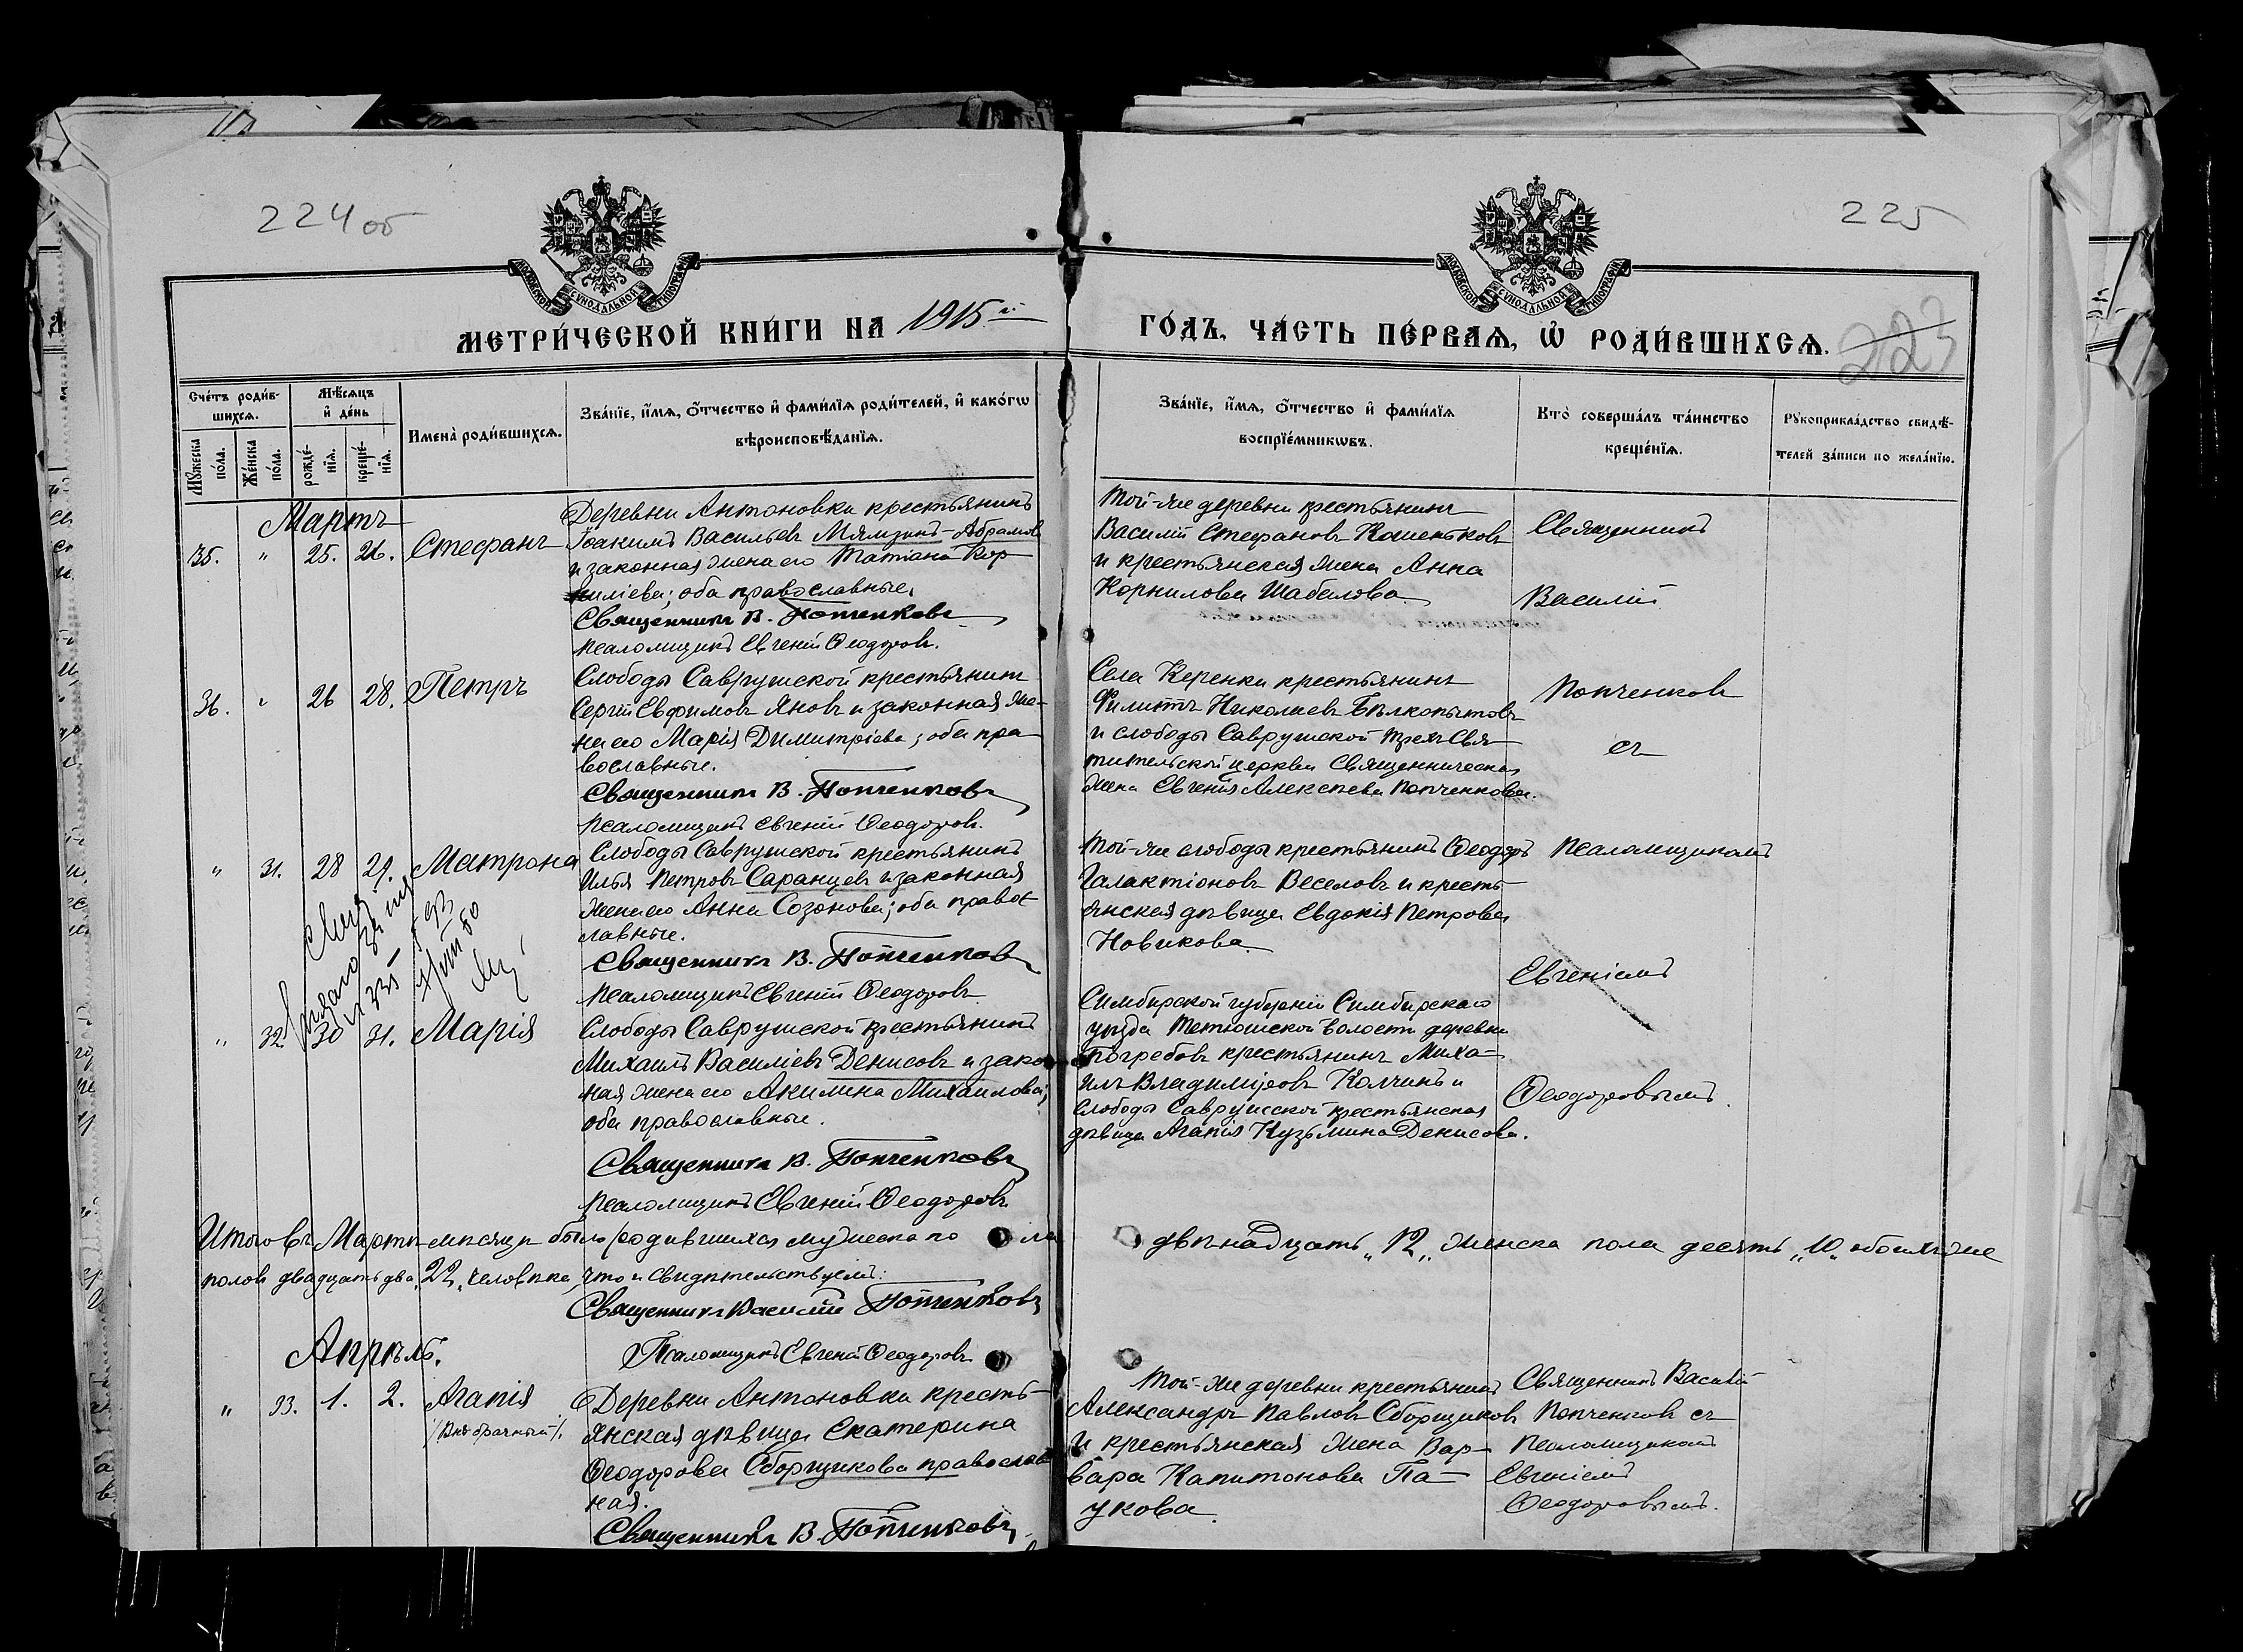 224 об
225
МОСКОВСКОЙ СѴНОДАЛЬНОЙ ТИПОГРАФІИ
МОСКОВСКОЙ СѴНОДАЛЬНОЙ ТИПОГРАФІИ
МЕТРИ́ЧЕСКОЙ КНИ́ГИ НА 1915-й
ГО́ДЪ, ЧА́СТЬ ПЕ́РВАЯ, Ѿ РОДИ́ВШИХСЯ.
223
Сче́тъ роди́в-
шихся.
Мѣ́сяцъ
и҆ де́нь
Мꙋ́жеска
по́ла.
Же́нска
по́ла.
рожде́-
нїѧ.
креще́-
нїѧ.
Имена̀ роди́вшихсѧ.
Зва́нїе, и҆́мѧ, ѻ҆́тчество и҆ фами́лїѧ роди́телей, и҆ како́гѡ
вѣроисповѣ́данїѧ.
Зва́нїе, и҆́мѧ, ѻ҆́тчество и҆ фами́лїѧ
воспрїе́мникѡвъ.
Кто̀ соверша́лъ та́инство
креще́нїѧ.
Рꙋкоприкла́дство свидѣ́-
телей за́писи по жела́нїю.
Мартъ
35. " 25. 26. Стефанъ
Деревни Антоновки крестьянинъ
Іоакимъ Васильевъ Мямзинъ-Абрамов
и законная жена его Татіана Кор
ниліева; оба православные,
Священникъ В. Попченковъ
псаломщикъ Евгеній Ѳеодоровъ.
Той-же деревни крестьянинъ
Василій Стефановъ Кашенковъ
и крестьянская жена Анна
Корнилова Шабалова
Священникъ
Василій
36. " 26 28. Петръ
Слободы Саврушской крестьянинъ
Сергій Евфимовъ Яновъ и законная же-
на его Марія Димитріева; оба пра
вославные.
Священникъ В. Попченковъ
псаломщикъ Евгеній Ѳеодоровъ.
Села Керенки крестьянинъ
Филиппъ Николаевъ Бѣлкопытовъ
и слободы Саврушской Трехъ Свя
тительской церкви Священническая
жена Евгенія Алексѣева Попченкова.
Попченковъ
съ
" 31. 28 29. Матрона
Слободы Саврушской крестьянинъ
Илья Петровъ Саранцевъ и законная
жена его Анна Созонова; оба правос
лавные.
Священникъ В. Попченковъ
псаломщикъ Евгеній Ѳеодоровъ
Той-же слободы крестьянинъ Ѳеодоръ
Галактіоновъ Веселовъ и кресть
янская дѣвица Евдокія Петрова
Новикова
Псаломщикомъ
Евгеніемъ
" 32. 30 31. Марія
Слободы Саврушской крестьянинъ
Михаилъ Василіевъ Денисовъ и закон
ная жена его Акилина Михаилова;
оба православные.
Священникъ В. Попченковъ
псаломщикъ Евгеній Ѳеодоровъ
Симбирской губерніи Симбирскаго
уѣзда Тетюшской волости деревни
Погребовъ крестьянинъ Миха-
илъ Владиміровъ Колчинъ и
слободы Саврушской крестьянская
дѣвица Агапія Кузьмина Денисова.
Ѳеодоровымъ.
Итого въ Мартѣ мѣсяцѣ было родившихся мужеска по ла двѣнадцать „12„ женска пола десять „10„ обоихъ же
половъ двадцать два „22„ человѣка, что и свидѣтельствуемъ:
Священникъ Василій Попченковъ
Псаломщикъ Евгеній Ѳеодоровъ
Апрѣль.
" 33. 1. 2. Агапія
/Внѣбрачный/.
Деревни Антоновки кресть-
янская дѣвица Екатерина
Ѳеодорова Сборщикова православ
ная.
Священникъ В. Попченковъ
Той-же деревни крестьянинъ
Александръ Павловъ Сборщиковъ
и крестьянская жена Вар-
вара Капитонова Па-
укова.
Священникъ Василій
Попченковъ съ
псаломщикомъ
Евгеніемъ
Ѳеодоровымъ.